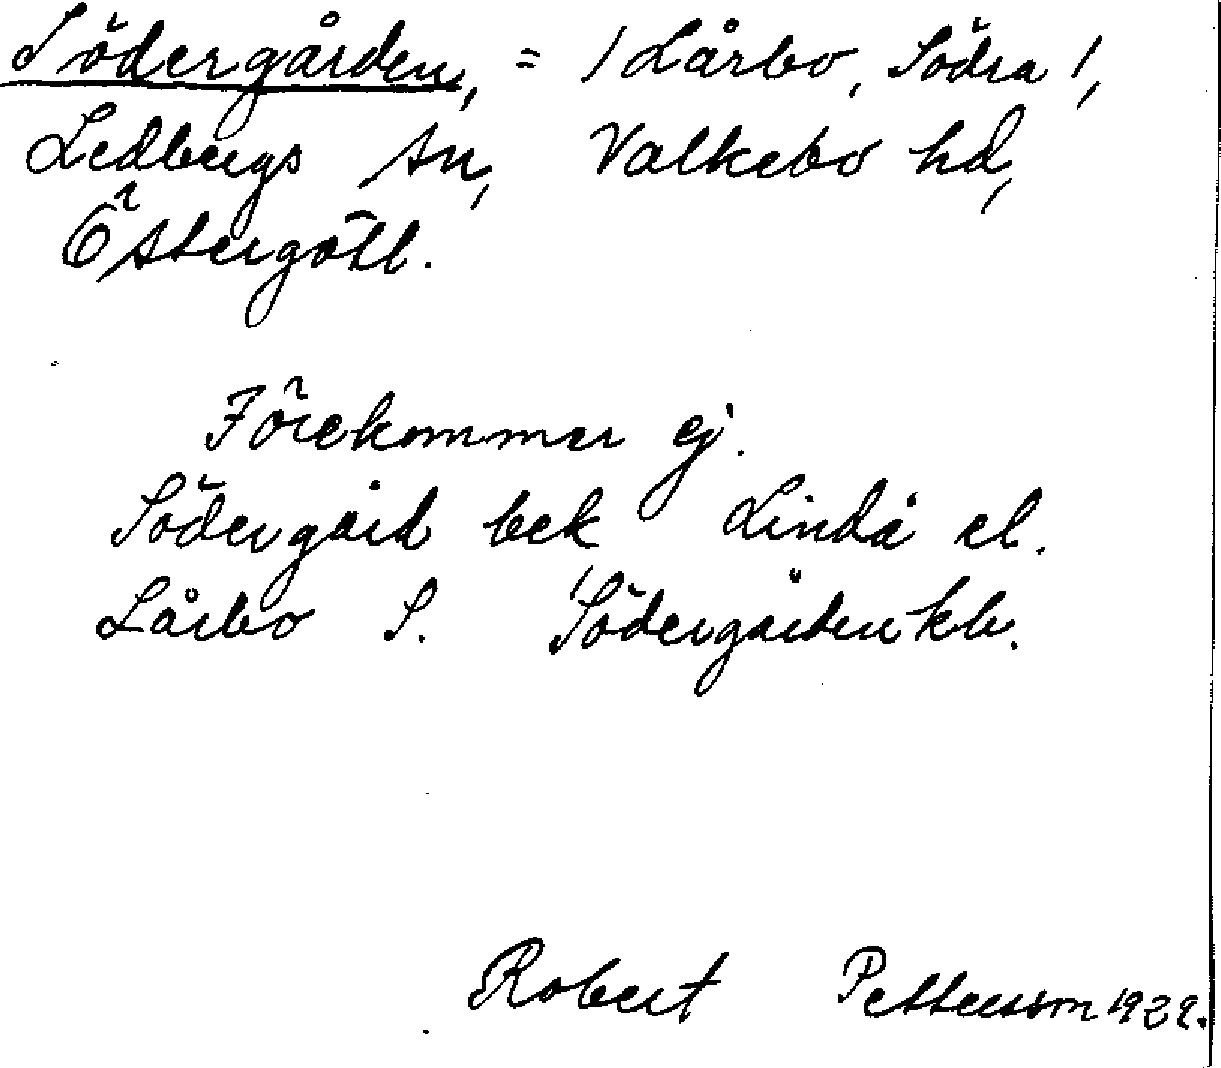 Södergården, = / Lårbo, Södra /,
Ledbergs sn, Valkebo hd,
Östergötl.
Förekommer ej.
Södergård bek Lindå el.
Lårbo S. Södergården kb.
Robert Pettersson 1922.